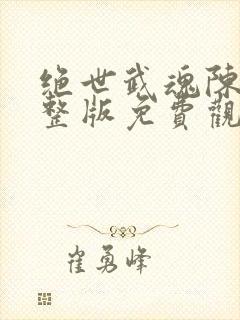 绝世武魂陈
整版免費觀
崔勇峰